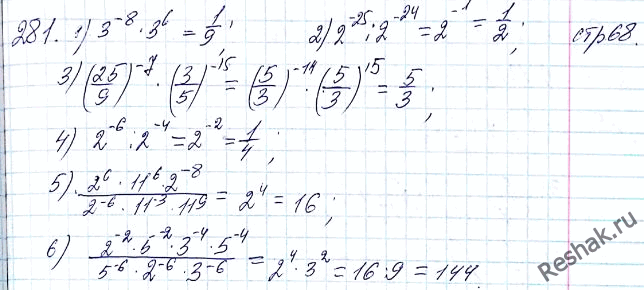 281. 1) 3⁻⁸ · 3⁶ = 1/9; 2) 2⁻²⁵ : 2⁻²⁴ = 2⁻¹ = 1/2; стр 68.
3) (25/9)⁻⁷ · (3/5)⁻¹⁵ = (5/3)⁻¹⁴ · (5/3)¹⁵ = 5/3;
4) 2⁻⁶ : 2⁻⁴ = 2⁻² = 1/4;
5) (2⁶ · 11⁶ · 2⁻⁸)/(2⁻⁶ · 11⁻³ · 11⁹) = 2⁴ = 16;
6) (2⁻² · 5⁻² · 3⁻⁴ · 5⁻⁴)/(5⁻⁶ · 2⁻⁶ · 3⁻⁶) = 2⁴ · 3² = 16 · 9 = 144.
Reshak.ru